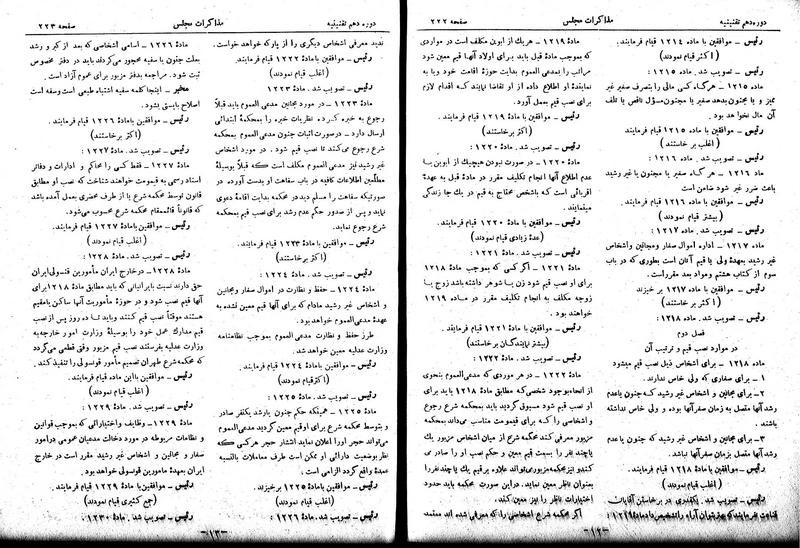 دوره دهم تقنینیه
مذاکرات مجلس
صفحه ۲۲۲
رئیس ــ موافقین با ماده ۱۲۱۴ قیام فرمایند.
(اکثر قیام نمودند)
رئیس ــ تصویب شد. ماده ۱۲۱۵:
ماده ۱۲۱۵ ــ هرگاه کسی مالی را بتصرف صغیر غیر
ممیز و یا مجنون بدهد صغیر یا مجنون مسؤل ناقص یا تلف
شدن آن مال نخواهد بود.
رئیس ــ موافقین با ماده ۱۲۱۵ قیام فرمایند
(اغلب برخاستند)
رئیس ــ تصویب شد. ماده ۱۲۱۶:
ماده ۱۲۱۶ ــ هرگاه صغیر یا مجنون یا غیر رشید
باعث ضرر غیر شود ضامن است
رئیس ــ موافقین با ماده ۱۲۱۶ قیام فرمایند.
(بیشتر قیام نمودند)
رئیس ــ تصویب شد. ماده ۱۲۱۷:
ماده ۱۲۱۷ ــ اداره اموال صغار ومجانین واشخاص
غیر رشید بعهدۀ ولی یا قیم آنان است بطوری که در باب
سوم از کتاب هشتم ومواد بعد مقرراست.
رئیس ــ موافقین با ماده ۱۲۱۷ برخیزند
(اکثر برخاستند)
رئیس ــ تصویب شد. ماده ۱۲۱۸:
فصل دوم
در موارد نصب قیم و ترتیب آن
ماده ۱۲۱۸ ــ برای اشخاص ذیل نصب قیم میشود
۱ ــ برای صغاری که ولی خاص ندارند.
۲ ــ برای مجانین و اشخاص غیر رشید که جنون یاعدم
رشد آنها متصل به زمان صغرآنها بوده و ولی خاص نداشته
باشند.
۳ ــ برای مجانین و اشخاص غیر رشید که جنون یاعدم
رشد آنها متصل بزمان صغرآنها نباشد.
رئیس ــ موافقین با ماده ۱۲۱۸ قیام فرمایند.
(اغلب قیام نمودند)
رئیس ــ تصویب شد. یکقدری در برخاستن آقایان
مادۀ ۱۲۱۹:
مادۀ ۱۲۱۹ ــ هریک از ابوین مکلف است در مواردی
که بموجب مادۀ قبل باید برای اولاد آنها قیم معین شود
مراتب را بمدعی العموم بدایت حوزۀ اقامت خود ویا به
نمایندۀ او اطلاع داده از او تقاضا نمایند که اقدام لازم
برای نصب قیم بعمل آورد.
رئیس ــ موافقین با مادۀ ۱۲۱۹ قیام فرمایند.
(اکثر برخاستند)
رئیس ــ تصویب شد. مادۀ ۱۲۲۰:
مادۀ ۱۲۲۰ ــ در صورت نبودن هیچیک از ابوین یا
عدم اطلاع آنها انجام تکلیف مقرر در مادۀ قبل به عهدۀ
اقربائی است که باشخص محتاج به قیم در یک جا زندگی
مینمایند.
رئیس ــ موافقین با مادۀ ۱۲۲۰ قیام فرمایند.
(عدۀ زیادی قیام نمودند)
رئیس ــ تصویب شد. مادۀ ۱۲۲۱:
مادۀ ۱۲۲۱ ــ اگر کسی که بموجب مادۀ ۱۲۱۸
برای او نصب قیم شود زن یا شوهر داشته باشد زوج یا
زوجه مکلف به انجام تکلیف مقرر در مادۀ ۱۲۱۹
خواهند بود.
رئیس ــ موافقین با مادۀ ۱۲۲۱ قیام فرمایند.
(بیشتر نمایندگان برخاستند)
رئیس ــ تصویب شد. مادۀ ۱۲۲۲:
مادۀ ۱۲۲۲ ــ در هر موردی که مدعی العموم بنحوی
از انحاء بوجود شخصی که مطابق مادۀ ۱۲۱۸ باید برای
او نصب قیم شود مسبوق گردید باید بمحکمه شرع رجوع
و اشخاصی را که برای قیمومت مناسب می‌داند بمحکمه
مزبور معرفی کند محکمه شرع از میان اشخاص مزبور یک
یا چند نفر را بسمت قیم معین و حکم نصب او را صادر می
کند و نیز محکمه مزبور می‌تواند علاوه بر قیم یک یا چند نفر را
بعنوان ناظر معین نماید. دراین صورت محکمه باید حدود
اختیارات ناظر را نیز معین کند.
اگر محکمه شرع اشخاصی را که معرفی شده اند معتمد
ــ۱۲ــ
دوره دهم تقنینیه
مذاکرات مجلس
صفحه ۲۲۳
ندید معرفی اشخاص دیگری را از پارکه خواهد خواست.
رئیس ــ موافقین با مادۀ ۱۲۲۲ قیام فرمایند.
(اغلب قیام نمودند)
رئیس ــ تصویب شد. مادۀ ۱۲۲۳
مادۀ ۱۲۲۳ ــ در مورد مجانین مدعی العموم باید قبلاً
رجوع به خبره کرده نظریات خبره را بمحکمۀ ابتدائی
ارسال دارد ــ درصورت اثبات جنون مدعی العموم بمحکمه
شرع رجوع می‌کند تا نصب قیم شود. در مورد اشخاص
غیر رشید نیز مدعی العموم مکلف است که قبلاً بوسیلۀ
مطلعین اطلاعات کافیه در باب سفاهت او بدست آورده در
صورتیکه سفاهت را مسلم دید در محکمه بدایت اقامۀ دعوی
نماید و پس از صدور حکم عدم رشد برای نصب قیم بمحکمه
شرع رجوع نماید.
رئیس ــ موافقین با مادۀ ۱۲۲۳ قیام فرمایند.
(اکثر برخاستند)
رئیس ــ تصویب شد. مادۀ ۱۲۲۴:
مادۀ ۱۲۲۴ ــ حفظ و نظارت در اموال صغار و مجانین
و اشخاص غیر رشید مادام که برای آنها قیم معین نشده به
عهدۀ مدعی العموم خواهد بود.
طرز حفظ و نظارت مدعی العموم بموجب نظامنامه
وزارت عدلیه معین خواهد شد.
رئیس ــ موافقین با مادۀ ۱۲۲۴ قیام فرمایند.
(اکثر قیام نمودند)
رئیس ــ تصویب شد. مادۀ ۱۲۲۵:
مادۀ ۱۲۲۵ ــ همینکه حکم جنون یا رشد یکنفر صادر
و بتوسط محکمه شرع برای او قیم معین گردید مدعی العموم
می‌تواند حجر اورا اعلان نماید انتشار حجر هر کسی که
نظر بوضعیت دارائی او ممکن است طرف معاملات بالنسبه
عمدۀ واقع گردد الزامی است.
رئیس ــ موافقین با مادۀ ۱۲۲۵ برخیزند.
(اغلب قیام نمودند)
رئیس ــ تصویب شد. مادۀ ۱۲۲۶:
مادۀ ۱۲۲۶ ــ اسامی اشخاصی که بعد از کبر و رشد
بعلت جنون یا سفه محجور می‌گردند باید در دفتر مخصوص
ثبت شود. مراجعه بدفتر مزبور برای عموم آزاد است.
مخبر ــ اینجا کلمه سفیه اشتباه طبعی است وسفه است
اصلاح بایستی بشود.
رئیس ــ موافقین با مادۀ ۱۲۲۶ قیام فرمایند.
(اکثر برخاستند)
رئیس ــ تصویب شد. مادۀ ۱۲۲۷:
مادۀ ۱۲۲۷ ــ فقط کسی را محاکم و ادارات و دفاتر
اسناد رسمی به قیمومت خواهند شناخت که نصب او مطابق
قانون توسط محکمه شرع یا از طرف محضری بعمل آمده باشد
که قانوناً قائممقام محکمه شرع محسوب می‌شود.
رئیس ــ موافقین با مادۀ ۱۲۲۷ قیام فرمایند.
(اغلب قیام نمودند)
رئیس ــ تصویب شد. مادۀ ۱۲۲۸:
مادۀ ۱۲۲۸ ــ درخارج ایران مأمورین قنسولی ایران
حق دارند نسبت بایرانیانی که باید مطابق مادۀ ۱۲۱۸ برای
آنها قیم نصب شود و در حوزۀ مأموریت آنها ساکن یا مقیم
هستند موقتاً نصب قیم کنند و باید تا ده روز پس از نصب
قیم مدارک عمل خود را بوسیلۀ وزارت امور خارجه به
وزارت عدلیه بفرستند نصب قیم مزبور وقتی قطعی می‌گردد
که محکمه شرع طهران تصمیم مأمور قونسولی را تنفیذ کند.
رئیس ــ موافقین با این ماده قیام فرمایند.
(اغلب قیام نمودند)
رئیس ــ تصویب شد. مادۀ ۱۲۲۹:
مادۀ ۱۲۲۹ ــ وظایف واختیاراتی که بموجب قوانین
و نظامات مربوطه در مورد دخالت مدعیان عمومی درامور
صغار و مجانین و اشخاص غیر رشید مقرر است در خارج
ایران بعهدۀ مامورین قنسولی خواهد بود.
رئیس ــ موافقین با مادۀ ۱۲۲۹ قیام فرمایند.
(جمع کثیری قیام نمودند)
رئیس ــ تصویب شد. مادۀ ۱۲۳۰:
ــ۱۳ــ